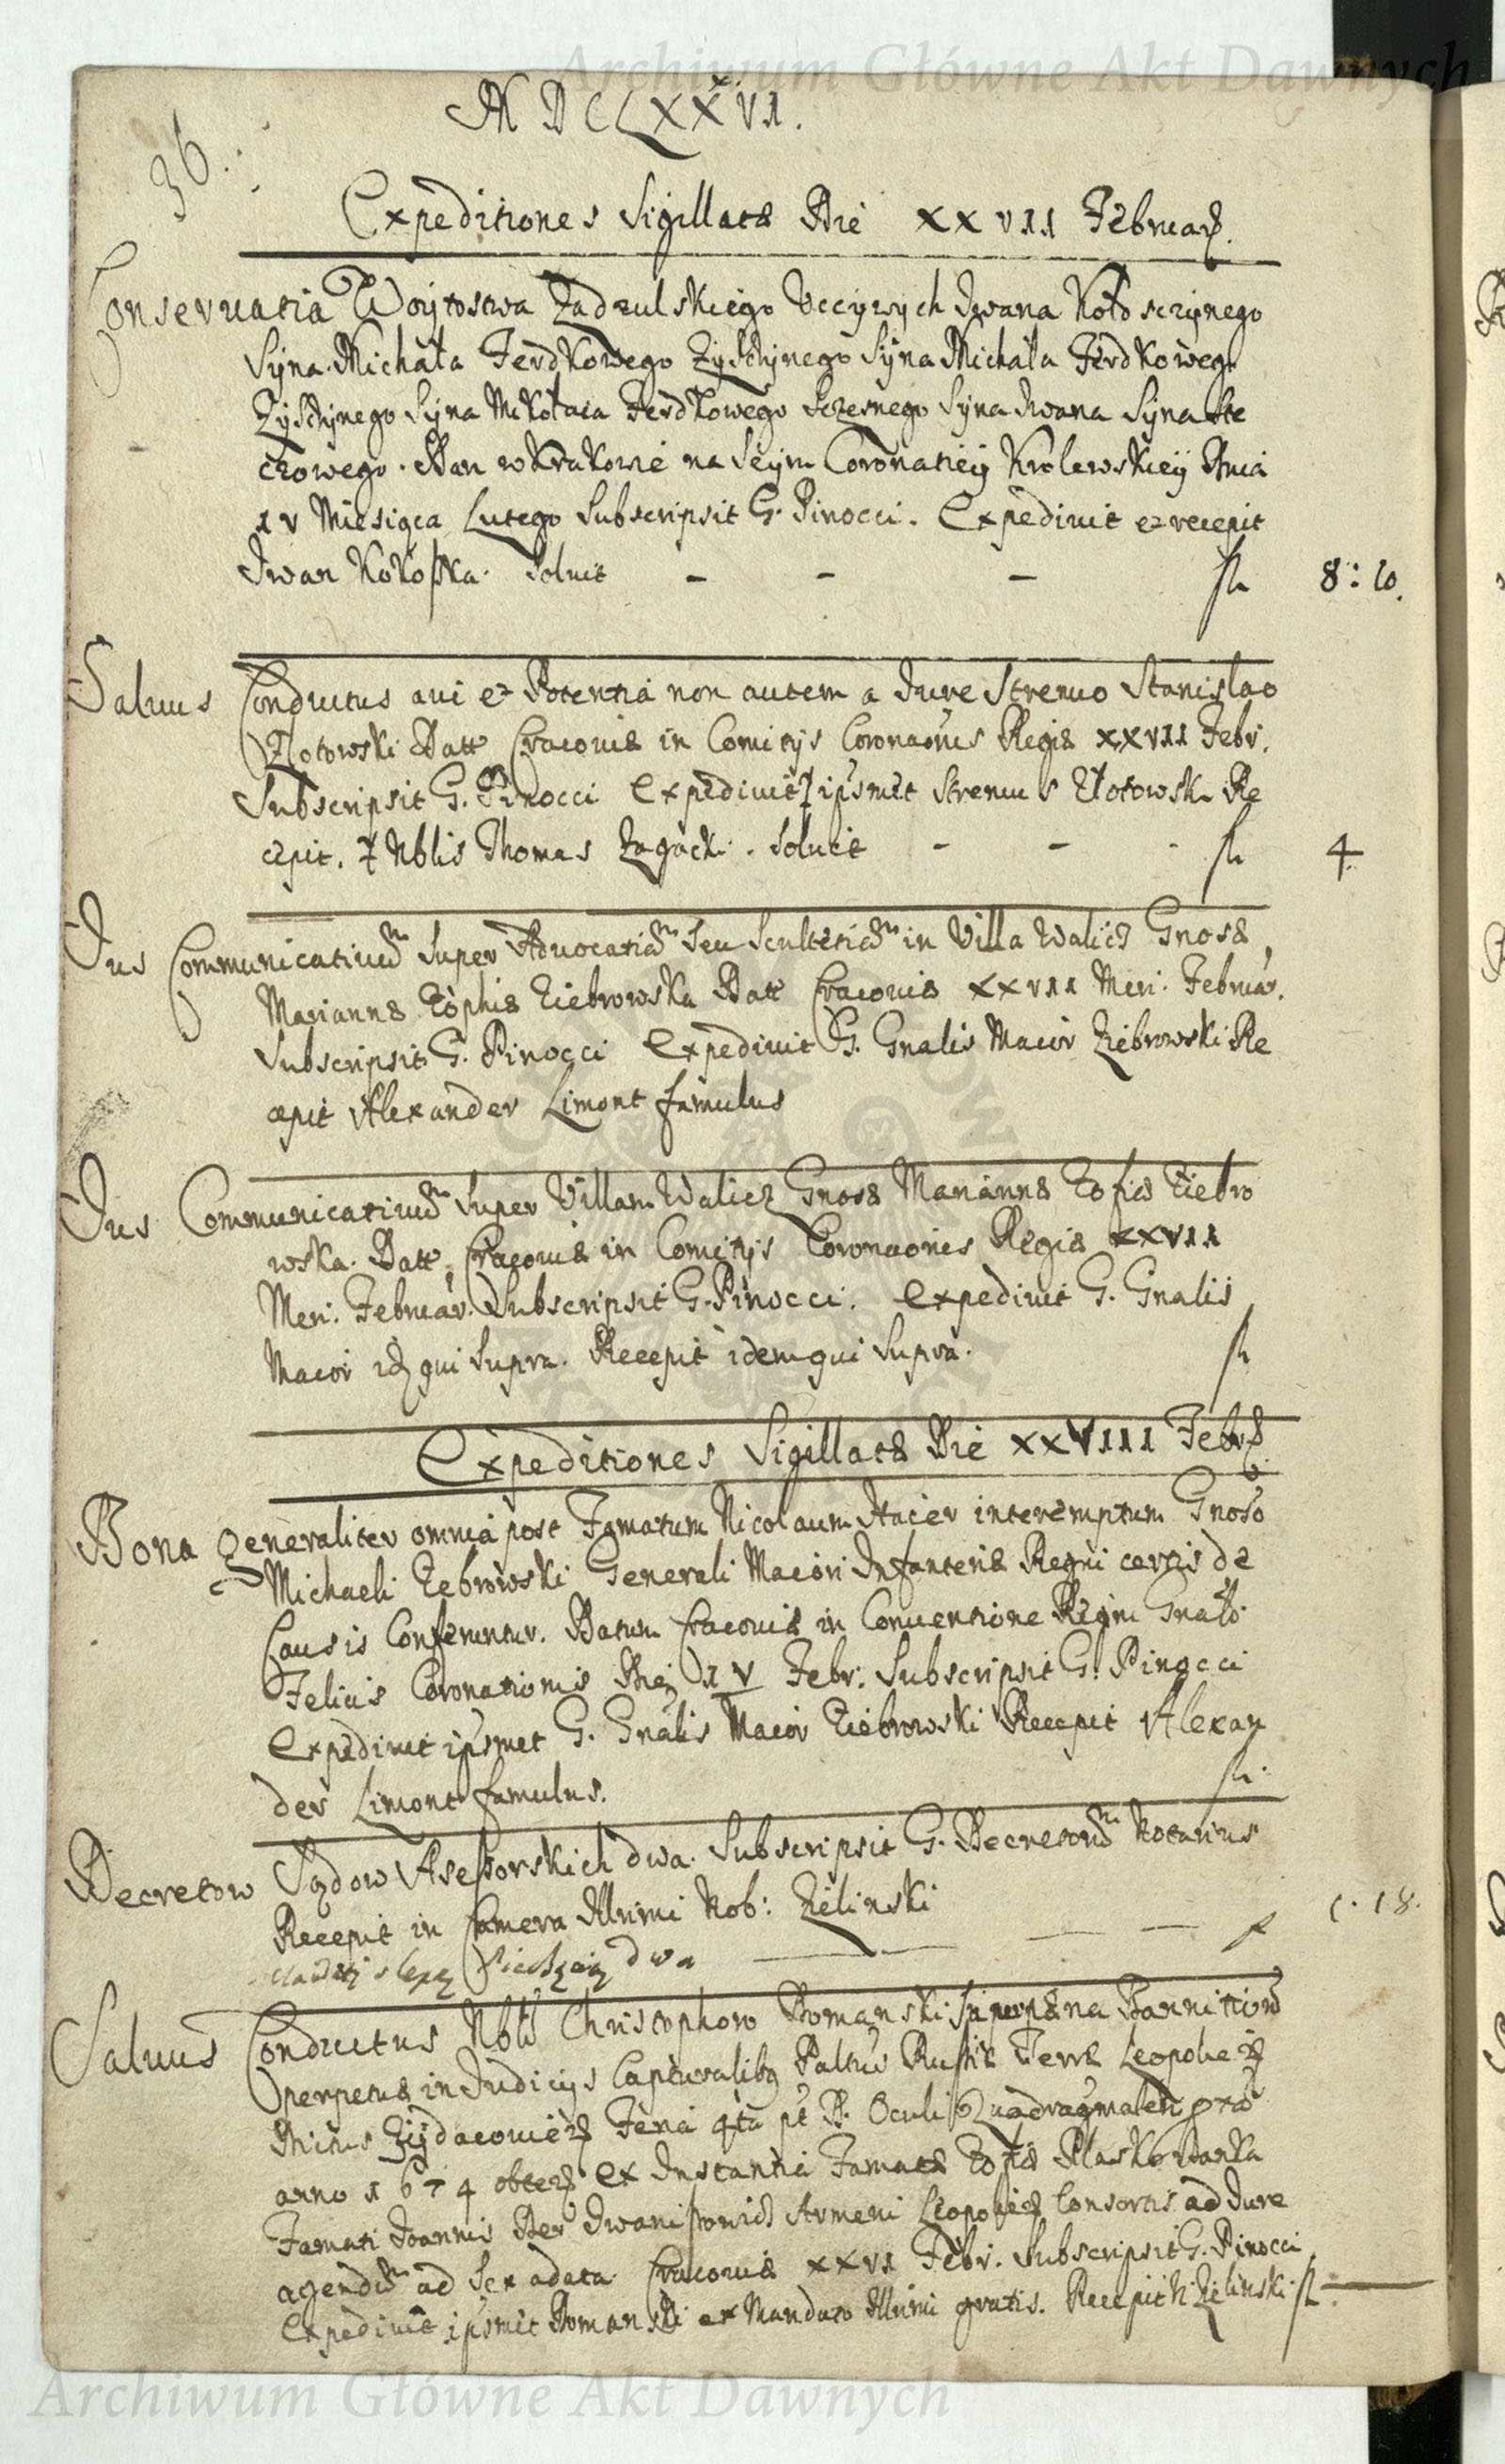 Archiwum Główne Akt Dawnych
MDCLXXVI.
36.
Expeditiones Sigillatæ Die XXVII Februar.
Conservatia Woytostwa Zadzulskiego Uccziwych Iwana
Syna Michała Ferdkowego Zyschynego Syna Michała Ferdkoweg
Zyschynego Syna Mikołaia Ferdkowego Sczesnego Syna Iwana Syna Ste
czowego. Dan w Krakowie na Seym Coronatiey Krolewskiey Dnia
IV Miesiąca Lutego Subscripsit G. Pinocci. Expedivit et recepit
Iwan Kokoszka. Solvit - - - fl 8: 10.
Salvus Conductus a vi et Potentia non autem a Iure Strenuo Stanislao
Złotowski Datt Cracoviæ in Comitys Coronaonis Regiæ XXVII Febr.
Subscripsit G. Pinocci Expedivit ipsmet Strenuus Złotowski Re
cepit. Nblis Thomas Zagacki. Solvit - - - fl 4
Ius Communicativum super Advocatiam seu Scultetiam in Villa Walicz Gnosæ
Mariannæ Zophiæ Ziebrowska Datt Cracoviæ XXVII Men: Februar.
Subscripsit G. Pinocci Expedivit G. Gnalis Maior Ziebrowski Re
cepit Alexander Limont famulus
Ius Communicativum super Villam Walicz Gnosæ Mariannæ Zofiæ Ziebro
wska. Datt Cracoviæ in Comitys Coronaonis Regiæ XXVII
Men: Februar. Subscripsit G. Pinocci. Expedivit G. Gnalis
Maior idq qui supra. Recepit idem qui supra. fl
Expeditiones Sigillatæ Die XXVIII Febr.
Bona generaliter omnia post Famatum Nicolaum interemptum Gnoso
Michaeli Zebrowski Generali Maiori Infanteriæ Regni certis de
Causis Conferuntur. Datum Cracoviæ in Conventione Regni Gnali
Felicis Coronationis Die IV Febr: Subscripsit G. Pinocci
Expedivit ipsmet G. Gnalis Maior Ziebrowski Recepit Alexan
der Limont famulus. fl.
Decretow Sądow Asessorskich dwa. Subscripsit G. Decretorum Notarius
Recepit in Camera Illrimi Nob: Zielinski
dwa fl 1. 18.
Salvus Conductus Nbli Christophoro Domanski super pæna Bannitionis
perpetuæ in Iudicijs Capturalibq Paltus Russiæ Terræ Leopolien
Zydaczovien Feria 4ta pt D. Oculi Quadragmalem
anno 1674 obten ex Instantia Famatæ Zofiæ
Famati Ioannis Der Armeni Leopolien Consortis ad Iure
agendum ad Sex adata Cracoviæ XXVI Febr. Subscripsit G. Pinocci
Expedivit ipsmet Domanski ex Mandato Illrimi gratis. Recepit N. Zielinski. fl
Archiwum Główne Akt Dawnych